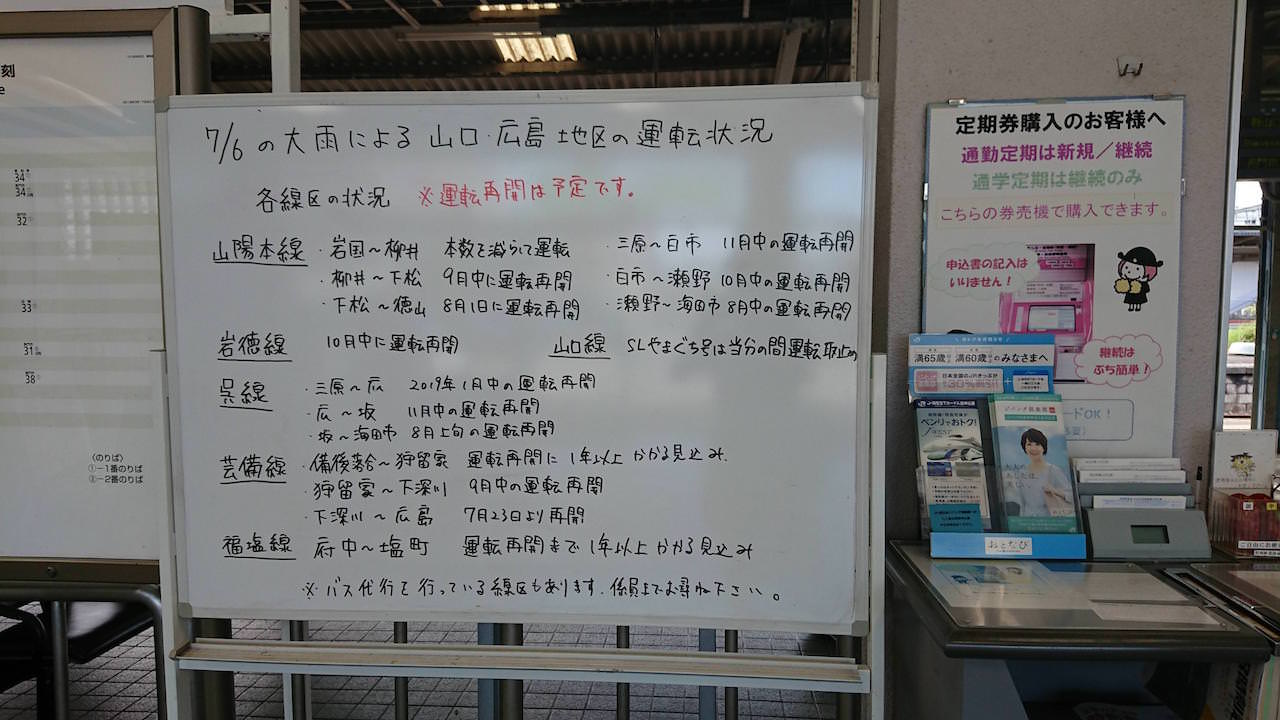 刻
e
34
34
32
33
31
38
(のりば)
①−1番のりば
②−2番のりば
7/6 の大雨による 山口・広島 地区の運転状況
各線区の状況 ※運転再開は予定です。
山陽本線 ・岩国～柳井 本数を減らして運転
・柳井～下松 9月中に運転再開
下松～徳山 8月1日に運転再開
・三原～白市 11月中の運転再開
・白市～瀬野 10月中の運転再開
・瀬野～海田市 8月中の運転再開
岩徳線 10月中に運転再開
山口線 SLやまぐち号は当分の間運転取止め
呉線 ・三原～広 2019年1月中の運転再開
・広～坂 11月中の運転再開
・坂～海田市 8月上旬の運転再開
芸備線 ・備後落合～狩留家 運転再開に1年以上かかる見込み.
・狩留家～下深川 9月中の運転再開
・下深川～広島 7月23日より再開
福塩線 府中～塩町 運転再開まで1年以上かかる見込み
※バス代行を行っている線区もあります.係員までお尋ね下さい。
定期券購入のお客様へ
通勤定期は新規／継続
通学定期は継続のみ
こちらの券売機で購入できます。
申込書の記入は
いりません！
継続は
ぶち簡単！
ードOK！
満65歳 満60歳のみなさまへ
日本全国のJRきっぷが
30%割引
ベンリでおトク！
ジパング倶楽部
大人の
あしたは、
美しい。
おとなび
ご自由にお使